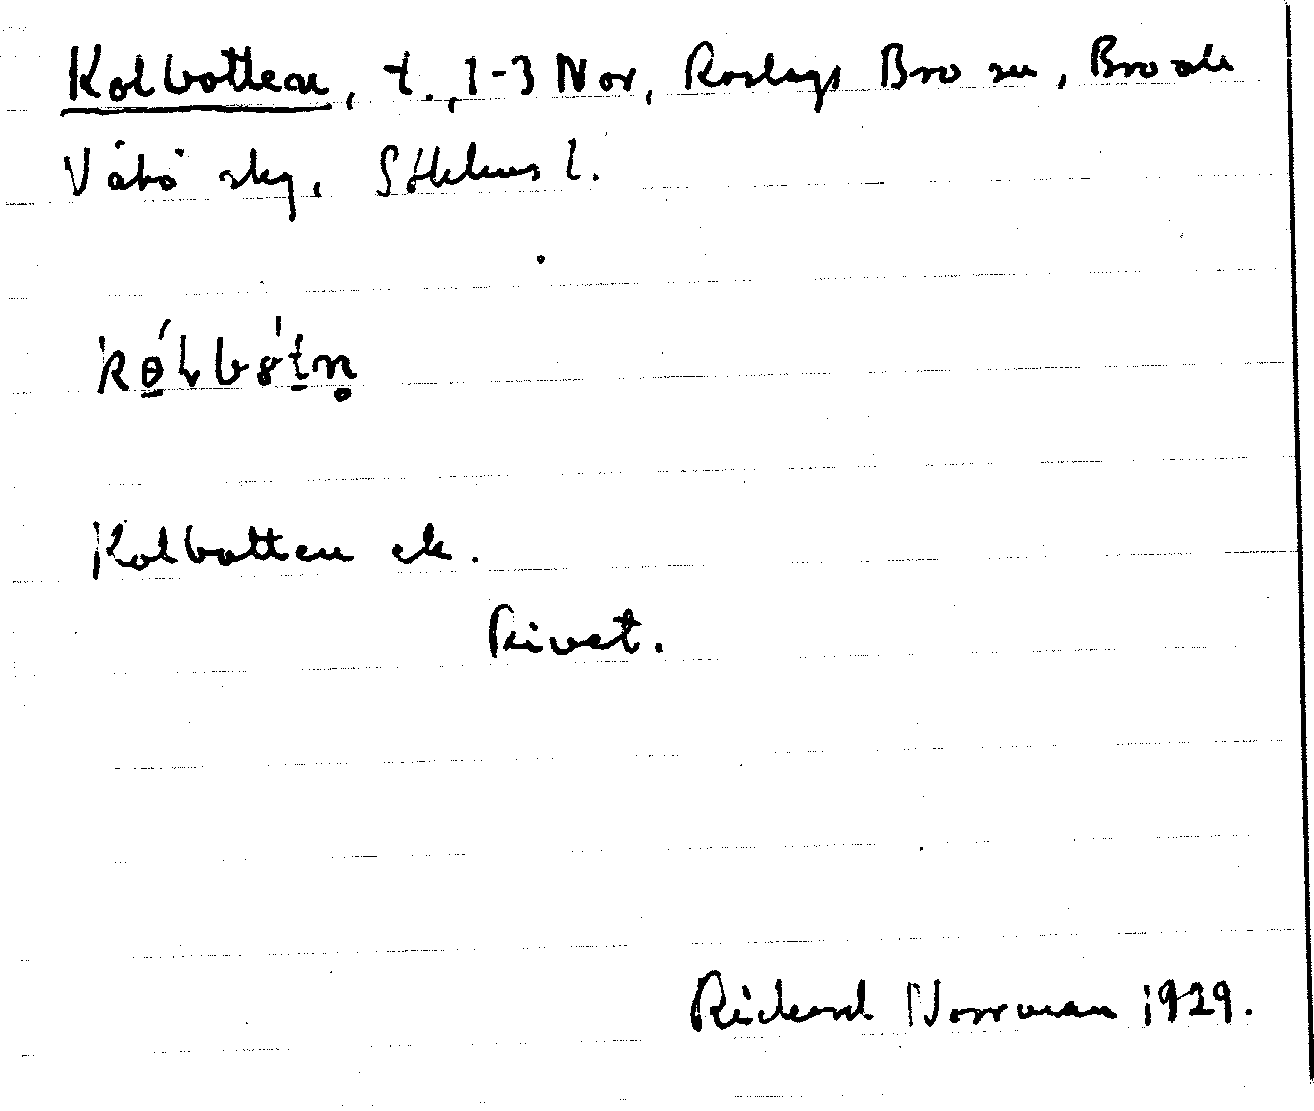 Kolbotten, t., 1-3 Nor, Roslags Bro sn, Bro ok
Vätö skg, Sthlms l.
Kolbotten ek.
Rivet.
Rickard Norrman 1929.